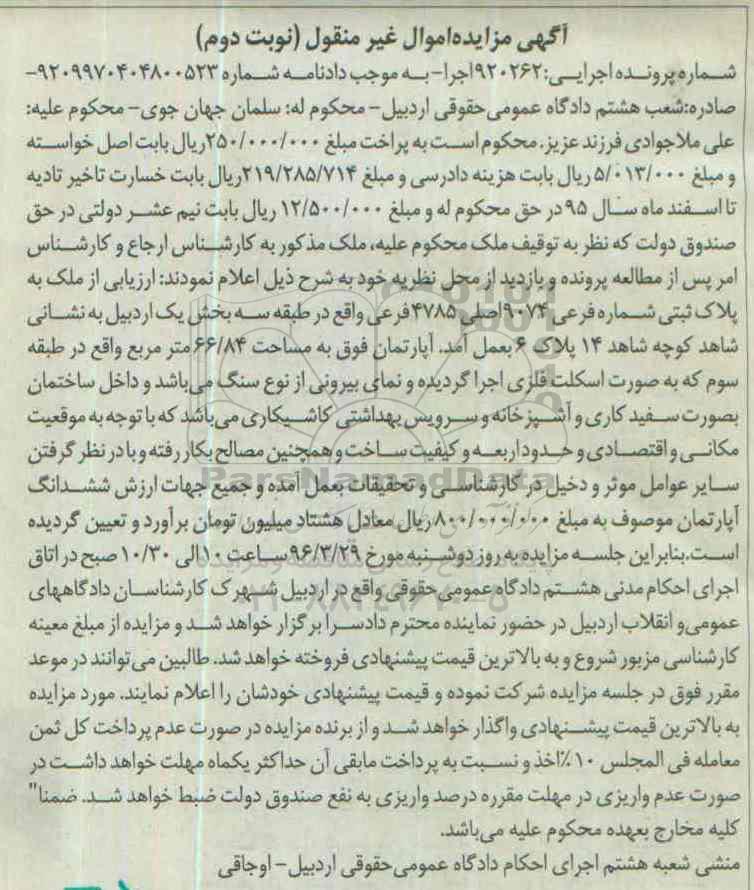 آگهی مزایده‌اموال غیر منقول (نوبت دوم)
شماره پرونده اجرایی:۹۲۰۲۶۲اجرا- به موجب دادنامه شماره ۹۲۰۹۹۷۰۴۰۴۸۰۰۵۲۳-
صادره:شعب هشتم دادگاه عمومی‌حقوقی اردبیل- محکوم له: سلمان جهان جوی- محکوم علیه:
علی ملاجوادی فرزند عزیز. محکوم است به پراخت مبلغ ۲۵۰/۰۰۰/۰۰۰ریال بابت اصل خواسته
و مبلغ ۵/۰۱۳/۰۰۰ ریال بابت هزینه دادرسی و مبلغ ۲۱۹/۲۸۵/۷۱۴ریال بابت خسارت تاخیر تادیه
تا اسفند ماه سال ۹۵ در حق محکوم له و مبلغ ۱۲/۵۰۰/۰۰۰ ریال بابت نیم عشر دولتی در حق
صندوق دولت که نظر به توقیف ملک محکوم علیه، ملک مذکور به کارشناس ارجاع و کارشناس
امر پس از مطالعه پرونده و بازدید از محل نظریه خود به شرح ذیل اعلام نمودند: ارزیابی از ملک به
پلاک ثبتی شماره فرعی ۹۰۷۴اصلی ۴۷۸۵فرعی واقع در طبقه سه بخش یک اردبیل به نشانی
شاهد کوچه شاهد ۱۴ پلاک ۶ بعمل آمد. آپارتمان فوق به مساحت ۶۶/۸۴ متر مربع واقع در طبقه
سوم که به صورت اسکلت فلزی اجرا گردیده و نمای بیرونی از نوع سنگ می‌باشد و داخل ساختمان
بصورت سفید کاری و آشپزخانه و سرویس بهداشتی کاشیکاری می‌باشد که با توجه به موقعیت
مکانی و اقتصادی و حدود اربعه و کیفیت ساخت و همچنین مصالح بکار رفته و با در نظر گرفتن
سایر عوامل موثر و دخیل در کارشناسی و تحقیقات بعمل آمده و جمیع جهات ارزش ششدانگ
آپارتمان موصوف به مبلغ ۸۰۰/۰۰۰/۰۰۰ ریال معادل هشتاد میلیون تومان برآورد و تعیین گردیده
است.بنابراین جلسه مزایده به روز دوشنبه مورخ ۹۶/۳/۲۹ساعت ۱۰الی ۱۰/۳۰ صبح در اتاق
اجرای احکام مدنی هشتم دادگاه عمومی‌حقوقی واقع در اردبیل شهرک کارشناسان دادگاههای
عمومی‌و انقلاب اردبیل در حضور نماینده محترم دادسرا برگزار خواهد شد و مزایده از مبلغ معینه
کارشناسی مزبور شروع و به بالاترین قیمت پیشنهادی فروخته خواهد شد. طالبین می‌توانند در موعد
مقرر فوق در جلسه مزایده شرکت نموده و قیمت پیشنهادی خودشان را اعلام نمایند. مورد مزایده
به بالاترین قیمت پیشنهادی واگذار خواهد شد و از برنده مزایده در صورت عدم پرداخت کل ثمن
معامله فی المجلس ۱۰٪اخذ و نسبت به پرداخت مابقی آن حداکثر یکماه مهلت خواهد داشت در
صورت عدم واریزی در مهلت مقرره درصد واریزی به نفع صندوق دولت ضبط خواهد شد. ضمنا"
کلیه مخارج بعهده محکوم علیه می‌باشد.
منشی شعبه هشتم اجرای احکام دادگاه عمومی‌حقوقی اردبیل- اوجاقی
ParsNamadData